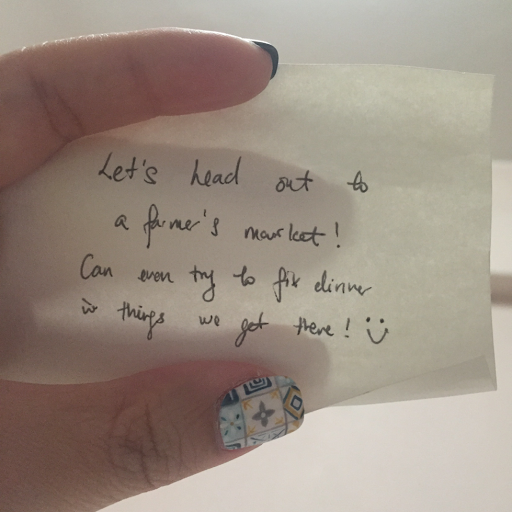 Let's head out to
a farmer's market!
Can even try to fix dinner
w things we get there! :)